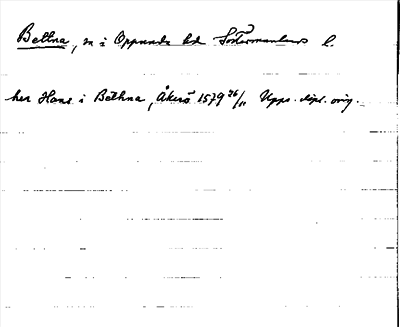 Bettna, sn i Oppunda hd Södermanlands l.
her Hans i Bethna, Åkerö 1579 26/11 Upps. dipl. orig.